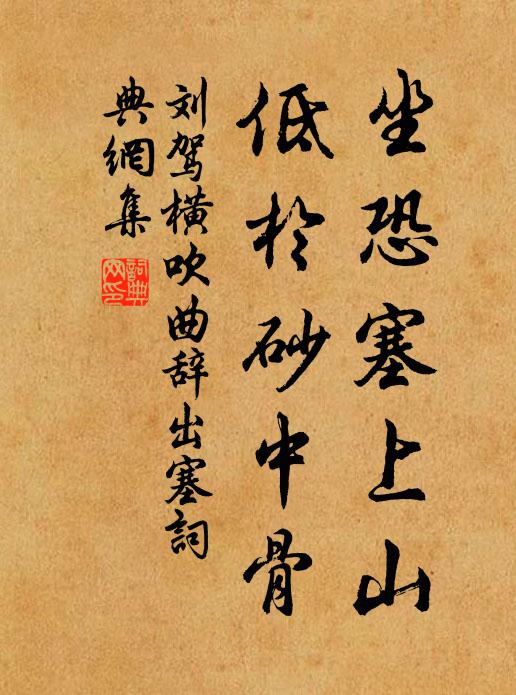 坐恐塞上山
低於砂中骨
刘驾横吹曲辞出塞詞
典網集
詞典网印